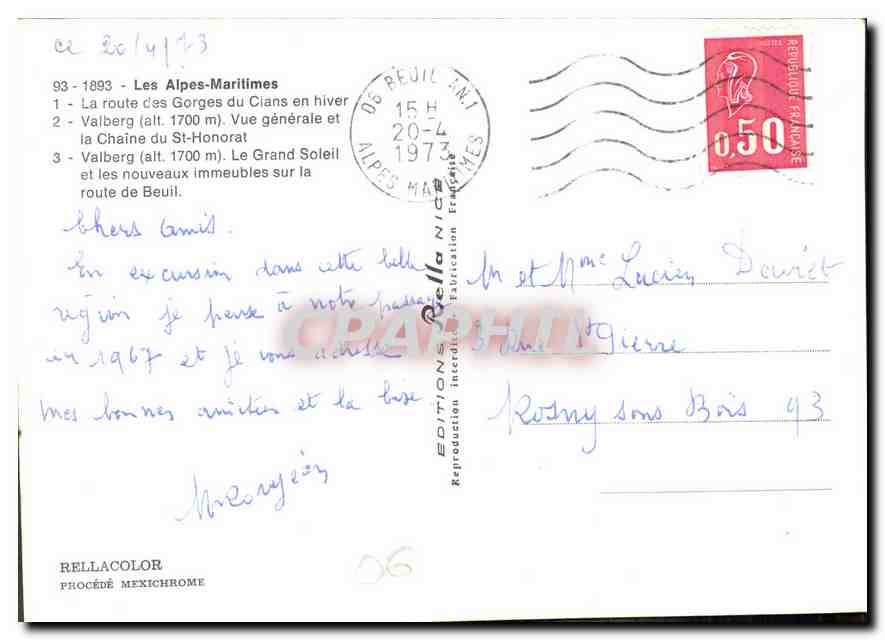 ce 20/4/73
93 - 1893 - Les Alpes-Maritimes
1 - La route des Gorges du Cians en hiver
2 - Valberg (alt. 1700 m). Vue générale et
la Chaîne du St-Honorat
3 - Valberg (alt. 1700 m). Le Grand Soleil
et les nouveaux immeubles sur la
route de Beuil.
06 BEUIL AN.1
15 H
20-4
1973
ALPES MARITIMES
POSTES
REPUBLIQUE FRANÇAISE
0,50
Chers amis.
En excursion dans cette belle
région je pense à notre passage
en 1967 et je vous adresse
mes bonnes amitiés et la bise
M et Mme Lucien
3 Rue St Pierre
Rosny sous Bois 93
EDITIONS Rella NICE
Reproduction interdite - Fabrication Française
CPAPHIL
RELLACOLOR
PROCÉDÉ MEXICHROME
06